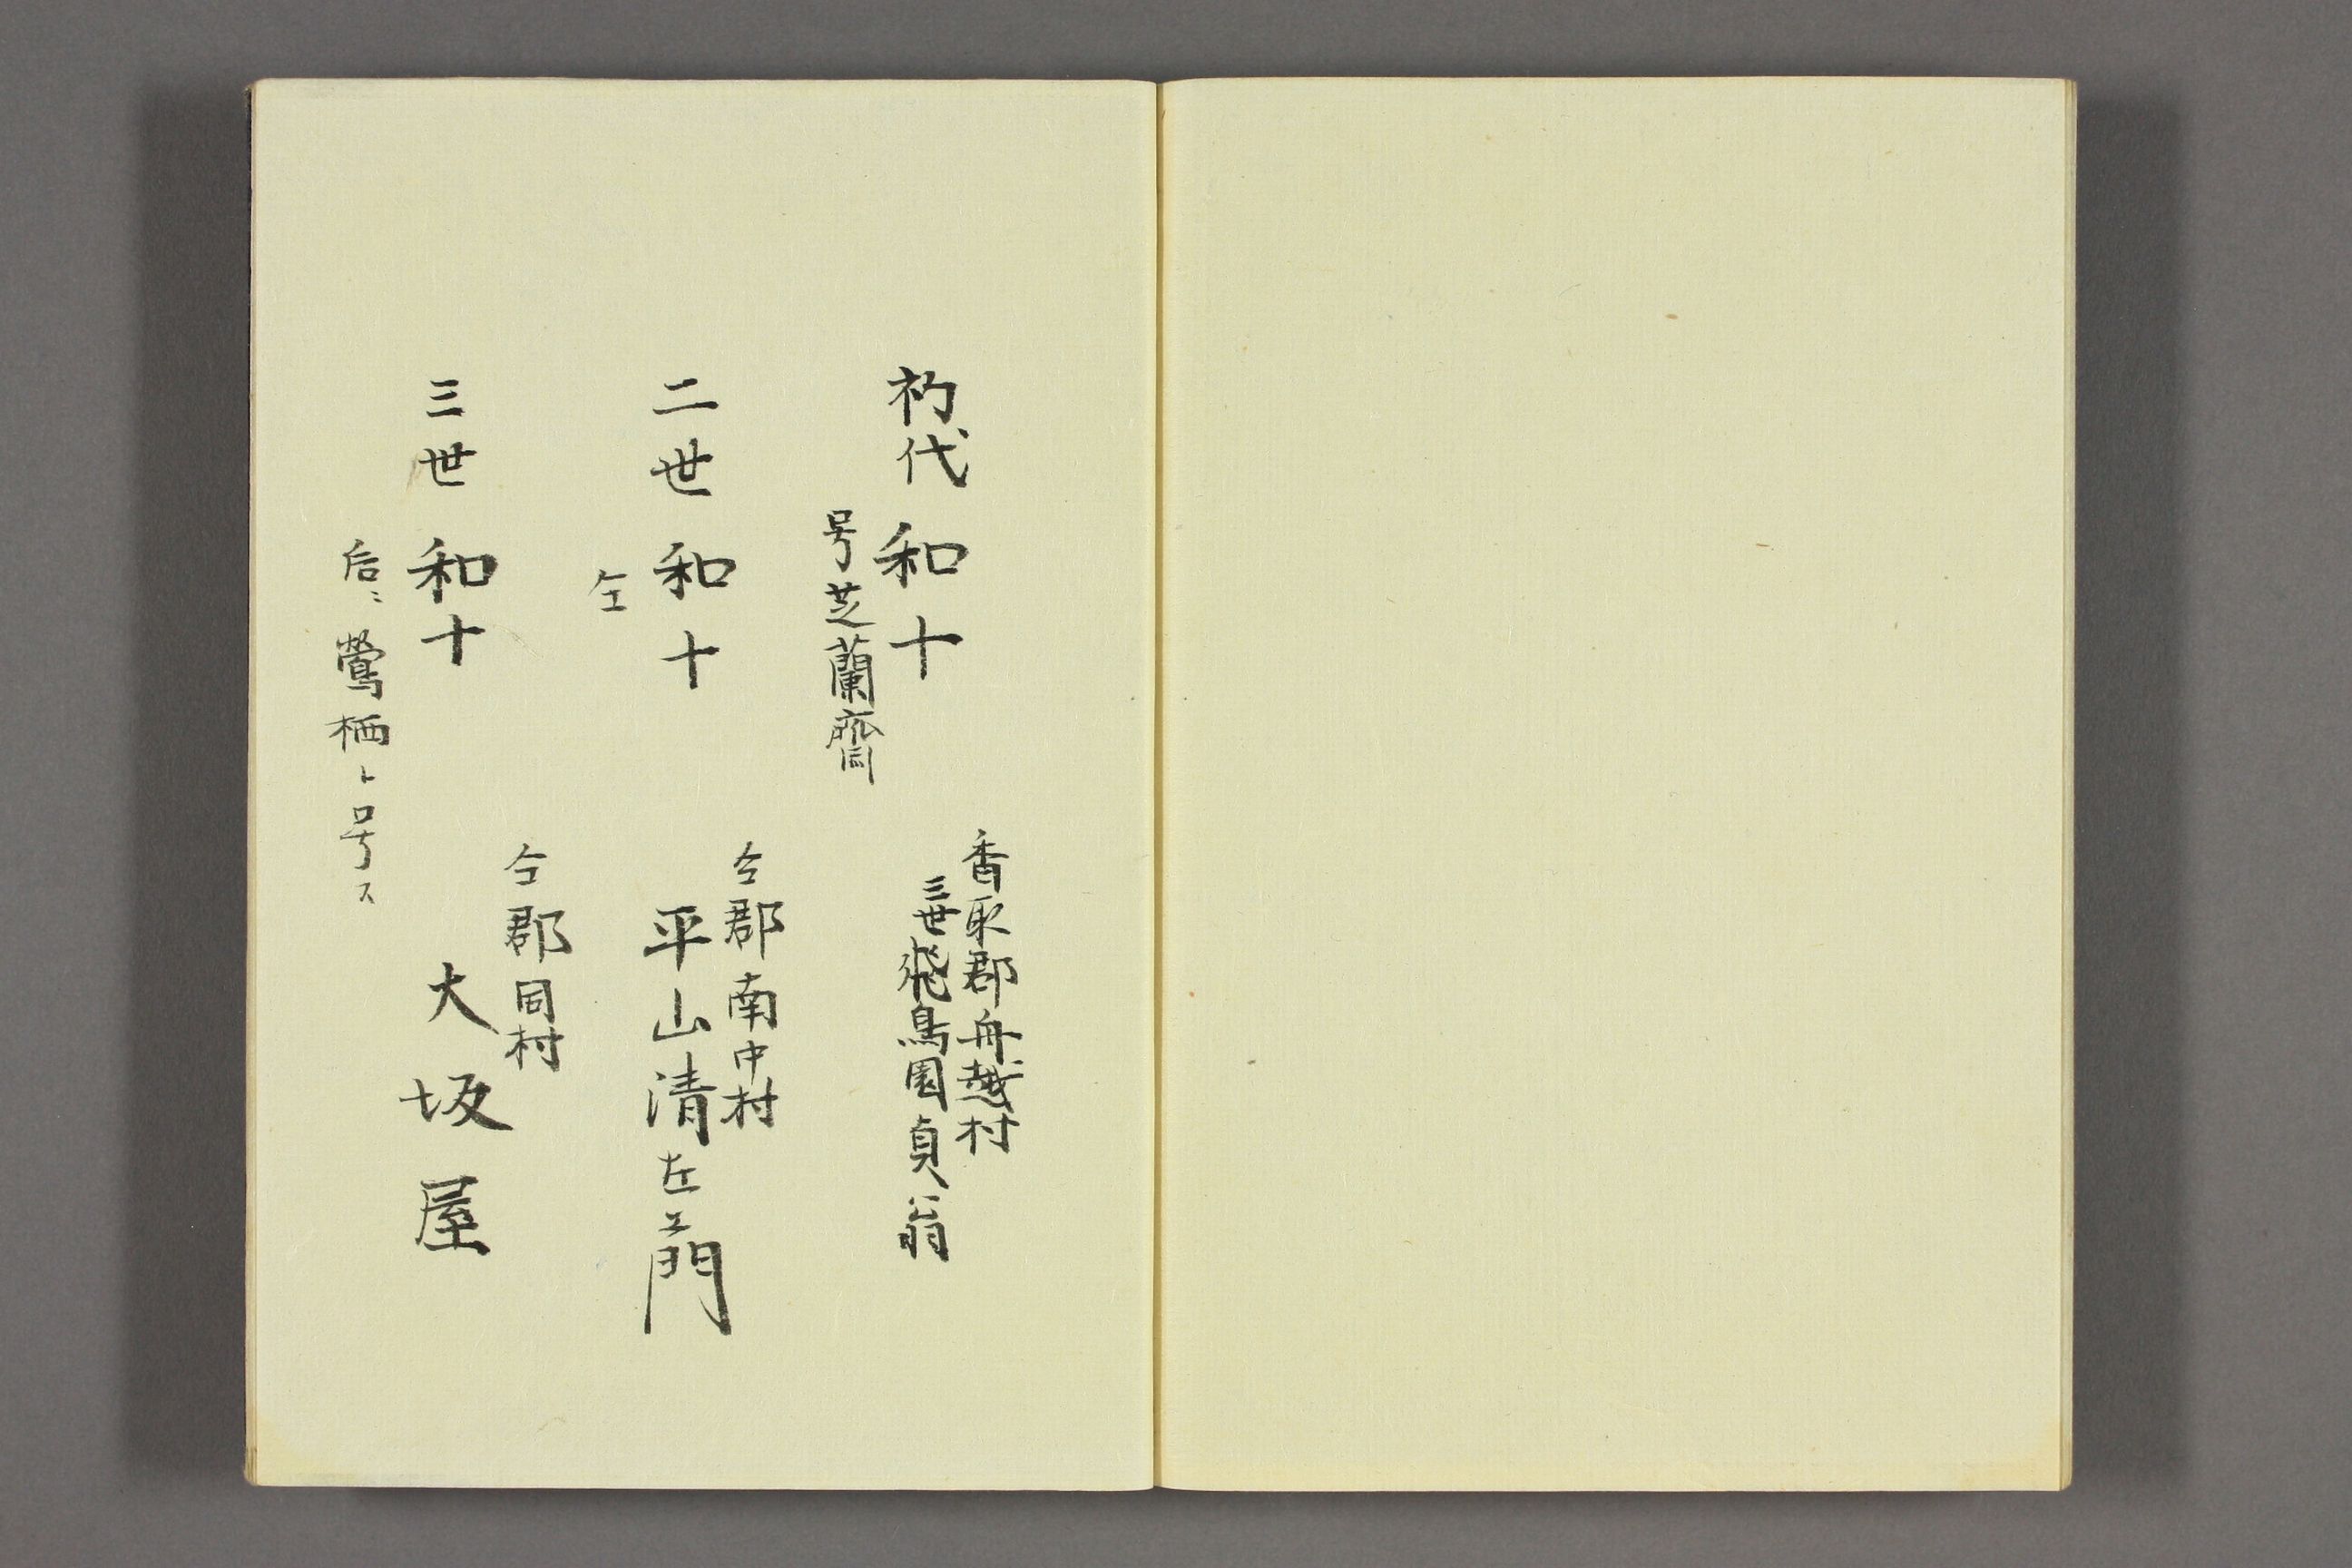 香取郡舟越村
初代和十
三世飛鳥園貞翁
号芝蘭齋
仝郡南中村
二世和十
平山清左エ門
仝
仝郡同村
三世和十
大坂屋
后ニ鶯栖ト号ス